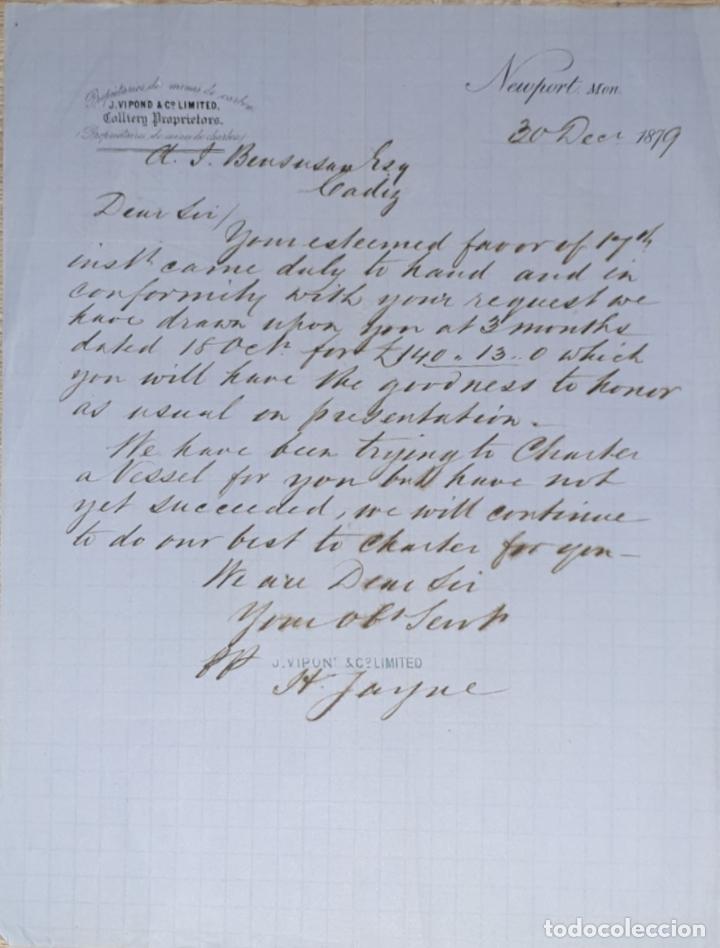 Propietarios de minas de carbon
J. VIPOND & Co. LIMITED,
Colliery Proprietors.
(Propietarios de minas de carbon)
Newport, Mon.
30 Decr 1879
A. J. Bensusan Esq
Cadiz
Dear Sir/
Your esteemed favor of 17th
inst. came duly to hand and in
conformity with your request we
have drawn upon you at 3 months
dated 18 Octr. for £140 .. 13 .. 0 which
you will have the goodness to honor
as usual on presentation.
We have been trying to Charter
a Vessel for you but have not
yet succeeded, we will continue
to do our best to charter for you—
We are Dear Sir
Your Obt Servts
pp J. VIPOND & Co. LIMITED
H. Jayne
todocoleccion
todocoleccion.net